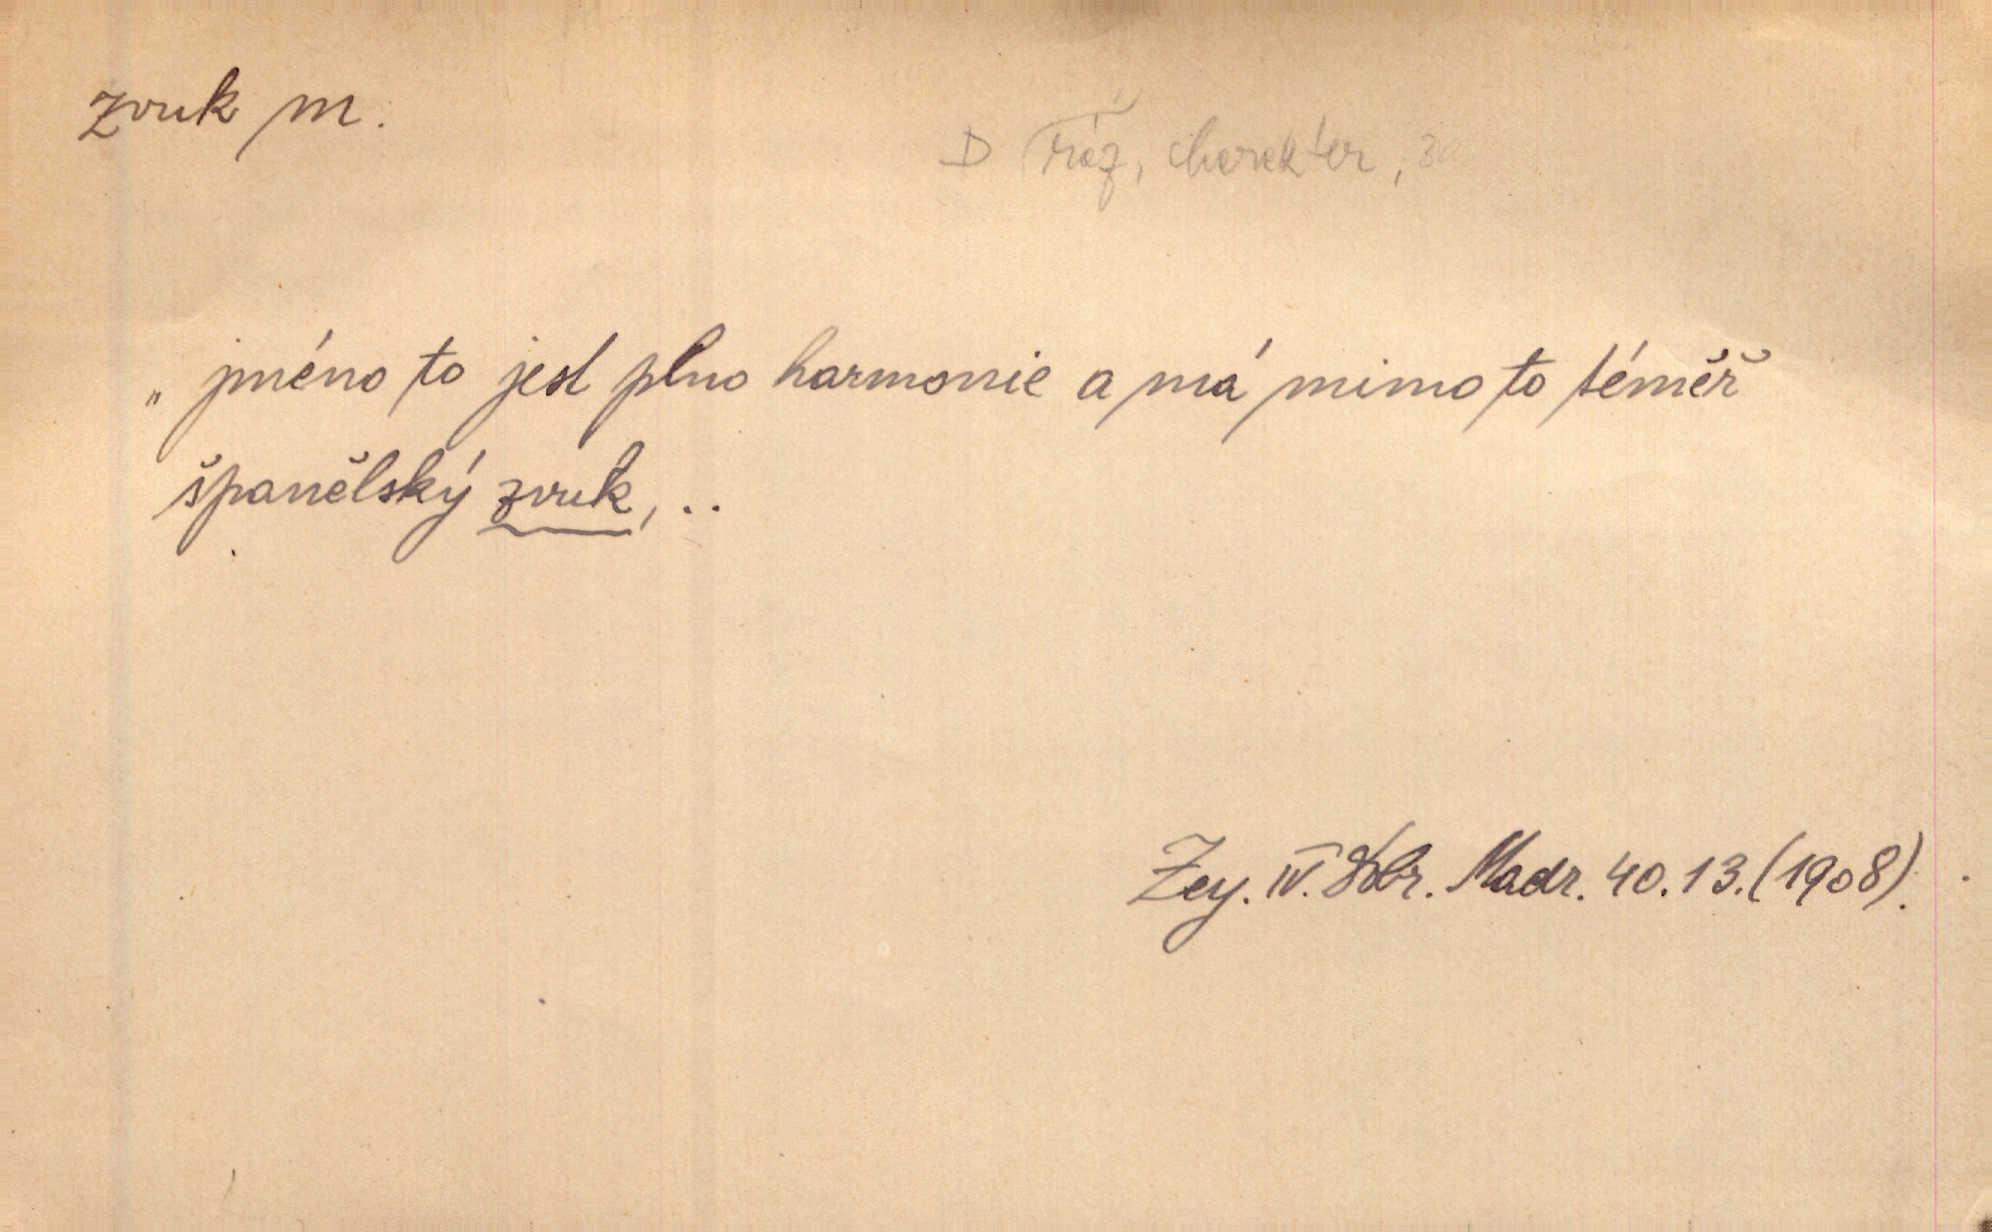 zvuk m.
D ráz, charakter,
„ jméno to jest plno harmonie a má mimo to téměř
španělský zvuk, ..
Zey. IV. Dobr. Madr. 40.13. (1908).